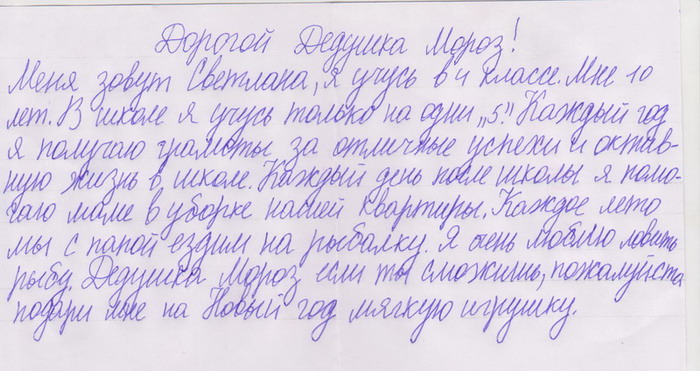 Дорогой Дедушка Мороз!
Меня зовут Светлана, я учусь в 4 классе. Мне 10
лет. В школе я учусь только на одни „5". Каждый год
я получаю грамоты за отличные успехи и октав-
ную жизнь в школе. Каждый день после школы я помо-
гаю маме в уборке нашей квартиры. Каждое лето
мы с папой ездим на рыбалку. Я очень люблю ловить
рыбу. Дедушка Мороз если ты сможишь, пожалуйста
подари мне на Новый год мягкую игрушку.